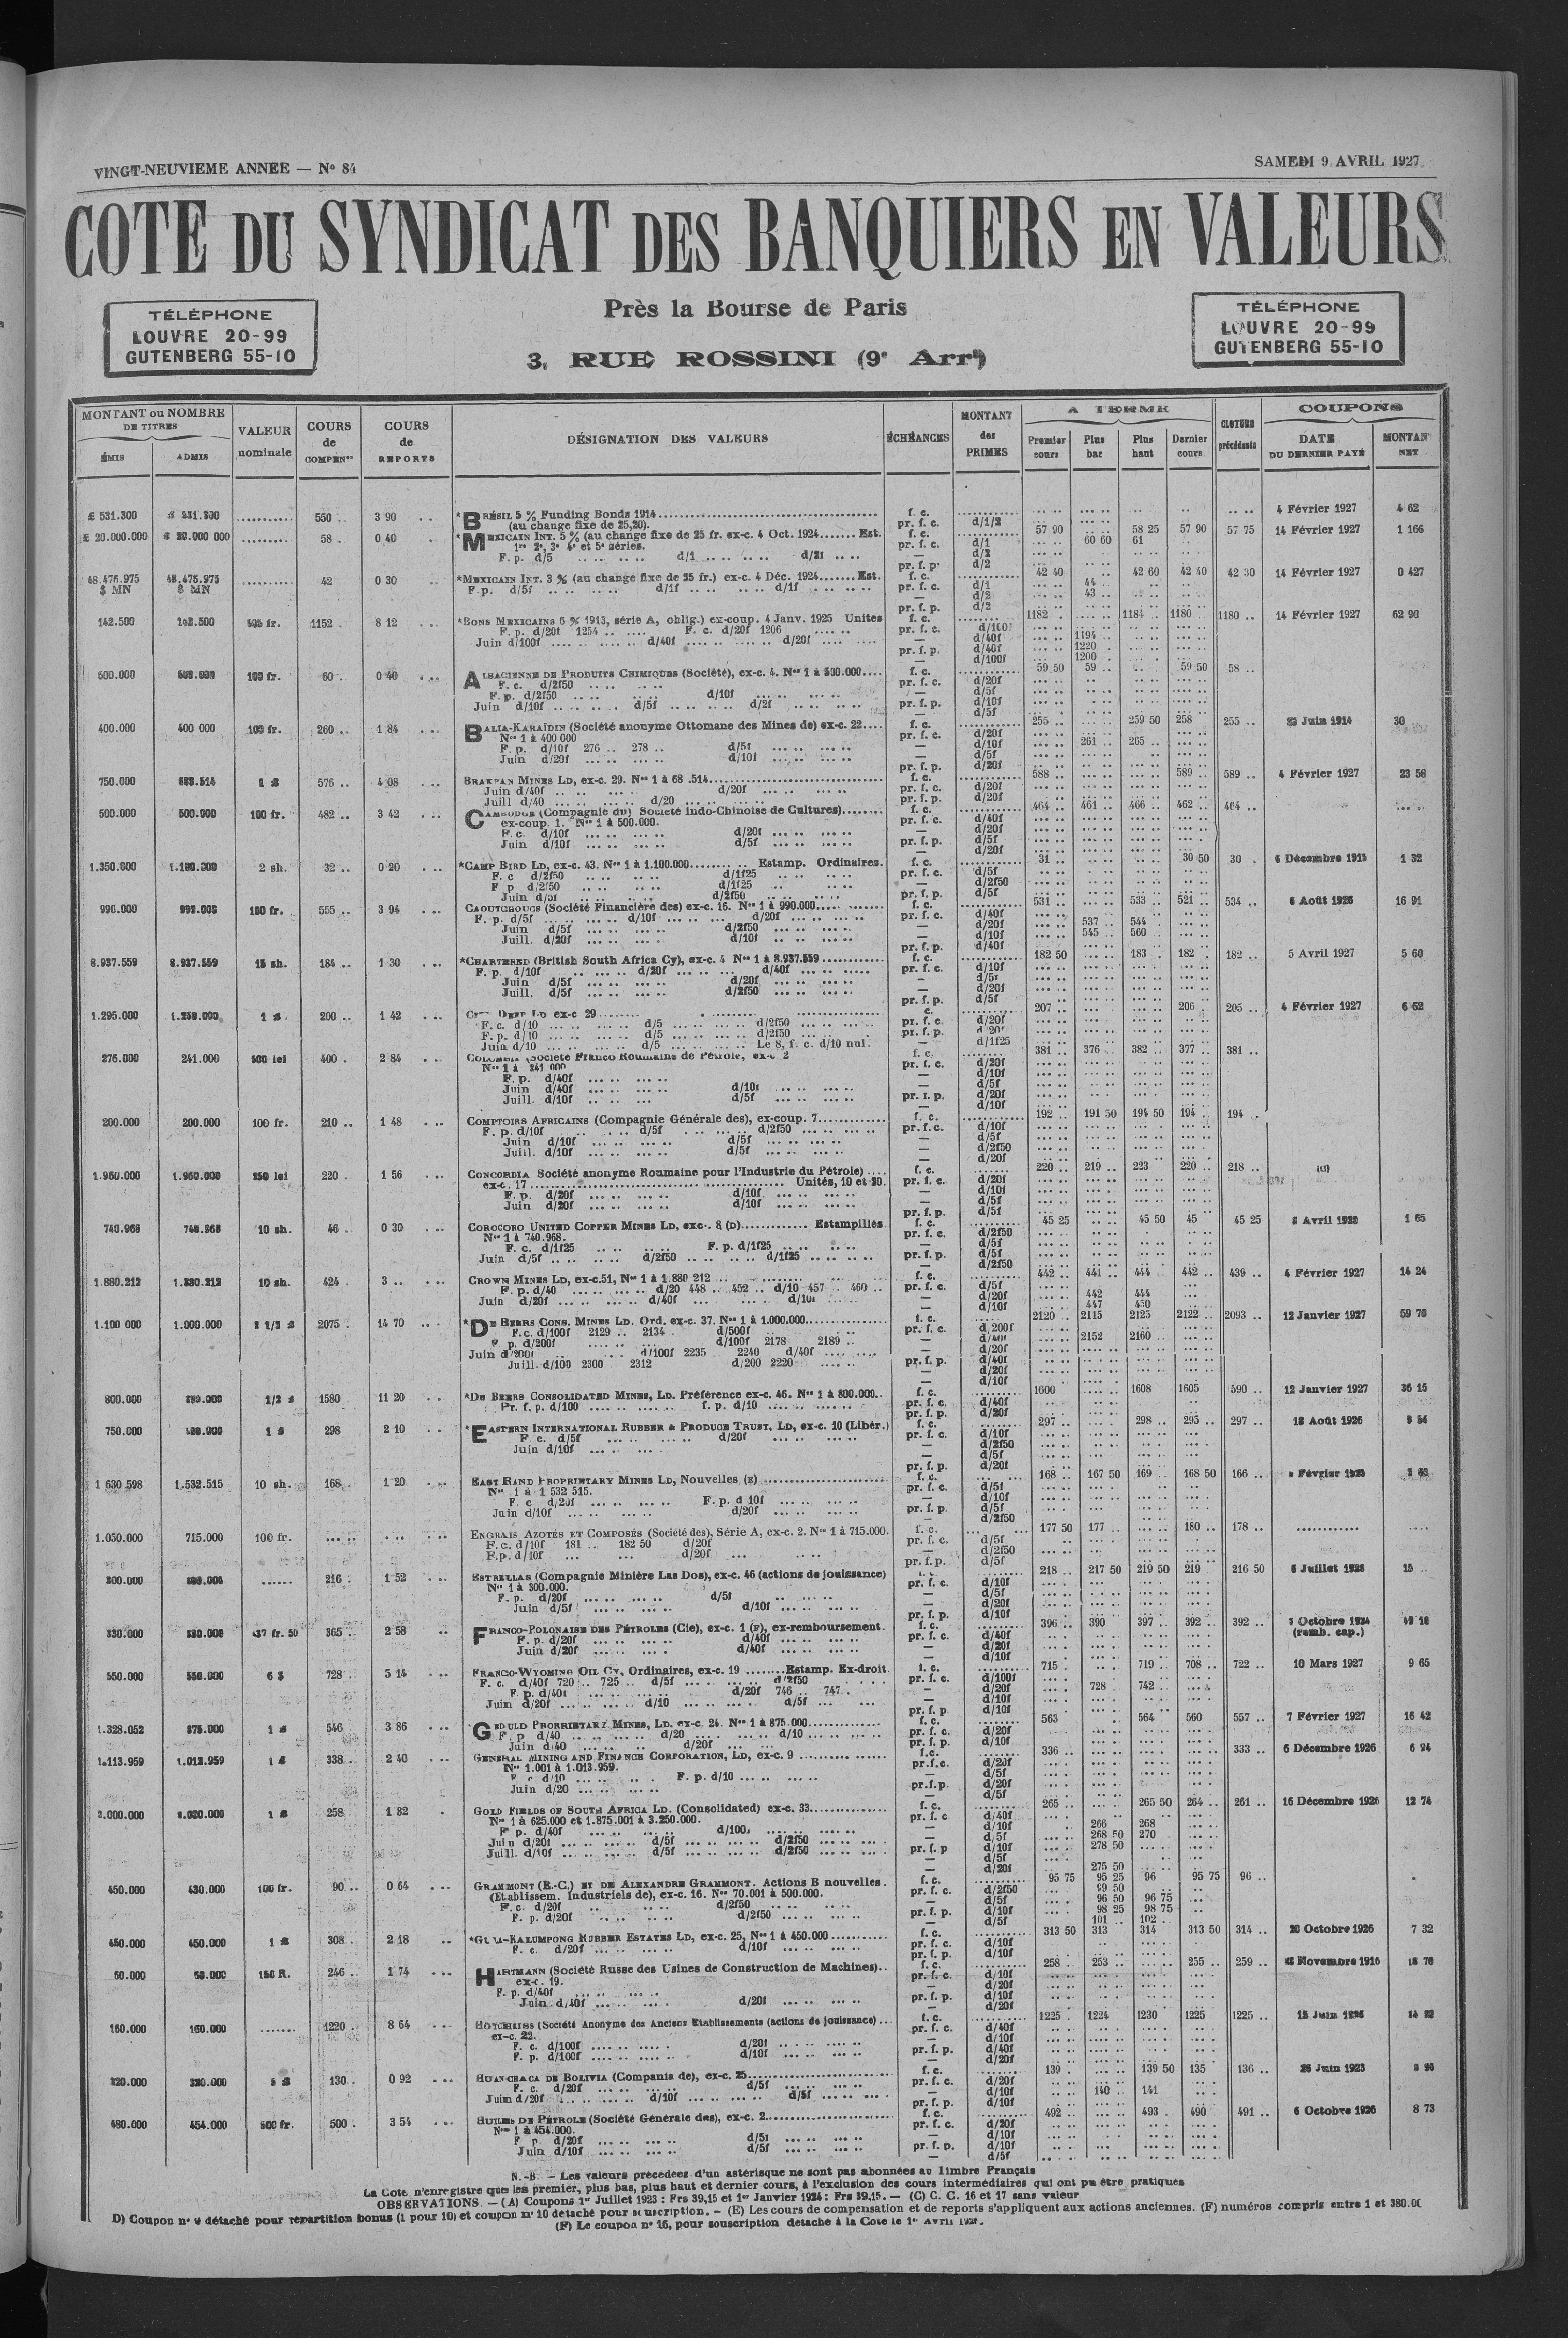 VINGT-NEUVIEME ANNEE — N° 84
SAMEDI 9 AVRIL 1927
COTE DU SYNDICAT DES BANQUIERS EN VALEURS
Près la Bourse de Paris
3, RUE ROSSINI (9e Arrt)
TÉLÉPHONE
LOUVRE 20-99
GUTENBERG 55-10
TÉLÉPHONE
LOUVRE 20-99
GUTENBERG 55-10
MONTANT ou NOMBRE DE TITRES
ÉMIS ADMIS
VALEUR nominale
COURS de COMPENon
COURS de REPORTS
DÉSIGNATION DES VALEURS
ÉCHÉANCES
MONTANT des PRIMES
A TERME
Premier cours Plus bas Plus haut Dernier cours
CLOTURE précédente
COUPONS
DATE DU DERNIER PAYÉ MONTAN NET
£ 531.300 550 .. 3 90 *BRÉSIL 5 % Funding Bonds 1914 f. c. 4 Février 1927 4 62
(au change fixe de 25,20). pr. f. c. d/1/2
£ 20.000.000 58 . 0 40 *MEXICAIN INT. 5 % (au change fixe de 25 fr. ex-c. 4 Oct. 1924 Est. f. c. 57 90 58 25 57 90 57 75 14 Février 1927 1 166
1re 2e, 3e 4e et 5e séries. pr. f. c. d/1 60 60 61
F. p. d/5 d/1 d/2f — d/2
pr. f. p. d/2
48.476.975 48.476.975 42 0 30 *MEXICAIN INT. 3 % (au change fixe de 25 fr.) ex-c. 4 Déc. 1924 Est. f. c. 42 40 42 60 42 40 42 30 14 Février 1927 0 427
$ MN $ MN F. p. d/5f d/1f d/1f pr. f. c. d/1 44
— d/2 43
pr. f. p. d/2
142.500 142.500 1152 . 8 12 *BONS MEXICAINS 6 % 1913, série A, oblig.) ex-coup. 4 Janv. 1925 Unites f. c. 1182 1184 1180 1180 14 Février 1927 62 90
F. p. d/20f 1254 F. c. d/20f 1206 pr. f. c. d/100f
Juin d/100f d/40f d/20f — d/40f 1194
pr. f. p. d/40f 1220
— d/100f 1200
500.000 100 fr. 60 . 0 40 ALSACIENNE DE PRODUITS CHIMIQUES (Société), ex-c. 4. Nos 1 à 500.000 f. c. 59 50 59 59 50 58
F. c. d/2f50 pr. f. c. d/20f
F. p. d/2f50 d/10f — d/5f
Juin d/10f d/5f d/2f pr. f. p. d/10f
— d/5f
400.000 400 000 100 fr. 260 1 84 BALIA-KARAÏDIN (Société anonyme Ottomane des Mines de) ex-c. 22 f. c. 255 259 50 258 255 Juin 1914 30
Nos 1 à 400 000 pr. f. c. d/20f
F. p. d/10f 276 278 d/5f — d/10f 261 265
Juin d/20f d/10f — d/5f
pr. f. p. d/20f
750.000 576 4 08 BRAKPAN MINES LD, ex-c. 29. f. c. 588 589 589 4 Février 1927 23 58
Juin d/40f d/20f pr. f. c. d/20f
Juill d/40 d/20 pr. f. p. d/20f
500.000 500.000 100 fr. 482 3 42 CAMBODGE (Compagnie du) Société Indo-Chinoise de Cultures) f. c. 464 461 466 462 464
ex-coup. 1. Nos 1 à 500.000. pr. f. c. d/40f
F. c. d/10f d/20f — d/20f
Juin d/10f d/5f pr. f. p. d/5f
— d/20f
1.350.000 1.100.000 2 sh. 32 0 20 *CAMP BIRD LD, ex-c. 43. Nos 1 à 1.100.000 Estamp. Ordinaires. f. c. 31 30 50 30 6 Décembre 1 32
F. c d/2f50 d/1f25 pr. f. c. d/5f
F p d/2f50 d/1f25 — d/2f50
Juin d/5f d/2f50 pr. f. p. d/5f
990.000 100 fr. 555 3 94 CAOUTCHOUCS (Société Financière des) ex-c. 16. Nos 1 à 990.000 f. c. 531 533 521 534 6 Août 1926 16 91
F. p. d/5f d/10f d/20f pr. f. c. d/40f
Juin d/5f d/2f50 — d/20f 537 544
Juill. d/20f d/10f — d/10f 545 560
pr. f. p. d/40f
8.937.559 8.937.559 15 sh. 184 1 30 *CHARTERED (British South Africa Cy), ex-c. 4 Nos 1 à 8.937.559 f. c. 182 50 183 182 182 5 Avril 1927 5 60
F. p. d/10f d/20f d/40f pr. f. c. d/10f
Juin d/5f d/20f — d/5f
Juill. d/5f d/2f50 — d/20f
pr. f. p. d/5f
1.295.000 200 1 42 ex-c 29 207 206 205 4 Février 1927 6 62
F. c. d/10 d/5 d/2f50 pr. f. c. d/20f
F. p. d/10 d/5 d/2f50 pr. f. p. d 20f
Juin d/10 d/5 Le 8, f. c. d/10 nul. — d/1f25
276.000 241.000 500 lei 400 . 2 84 COLOMBIA (Société Franco Roumaine de Pétrole, ex-c 2 f. c. 381 376 382 377 381
Nos 1 à 241 000 pr. f. c. d/20f
F. p. d/40f — d/10f
Juin d/40f d/10f — d/5f
Juill. d/10f d/5f pr. f. p. d/20f
— d/10f
200.000 200.000 100 fr. 210 1 48 COMPTOIRS AFRICAINS (Compagnie Générale des), ex-coup. 7 f. c. 192 191 50 194 50 194 194
F. p. d/10f d/5f d/2f50 pr. f. c. d/10f
Juin d/10f d/5f — d/5f
Juill. d/10f d/5f — d/2f50
— d/20f
1.960.000 1.960.000 250 lei 220 . 1 56 CONCORDIA Société anonyme Roumaine pour l'Industrie du Pétrole) f. c. 220 219 223 220 218
ex-c. 17 Unités, 10 et 20. pr. f. c. d/20f
F. p. d/20f d/10f — d/10f
Juin d/20f d/10f — d/5f
pr. f. p. d/5f
740.968 740.968 10 sh. 46 0 30 COROCORO UNITED COPPER MINES LD, exc-. 8 (D) Estampillés f. c. 45 25 45 50 45 45 25 Avril 1 65
Nos 1 à 740.968. pr. f. c. d/2f50
F. c. d/1f25 F. p. d/1f25 — d/5f
Juin d/5f d/2f50 d/1f25 pr. f. p. d/5f
— d/2f50
1.880.212 1.880.212 10 sh. 424 3 CROWN MINES LD, ex-c.51, Nos 1 à 1 880 212 f. c. 442 441 444 442 439 4 Février 1927 14 24
F. p. d/40 d/20 448 452 d/10 457 460 pr. f. c. d/5f
Juin d/20f d/40f d/10f — d/20f 442 444
— d/10f 447 450
1.100 000 1.000.000 2 1/2 £ 2075 . 14 70 *DE BEERS CONS. MINES LD. Ord. ex-c. 37. Nos 1 à 1.000.000 f. c. 2120 2115 2125 2122 2093 12 Janvier 1927 59 70
F.c. d/100f 2129 2134 d/500f pr. f. c. d/200f
p. d/200f d/100f 2178 2189 — d/40f 2152 2160
Juin d/200f d/100f 2235 2240 d/40f — d/20f
Juill. d/100 2300 2312 d/200 2220 pr. f. p. d/40f
— d/20f
— d/10f
800.000 1580 11 20 *DE BEERS CONSOLIDATED MINES, LD. Préférence ex-c. 46. Nos 1 à 800.000 f. c. 1600 1608 1605 590 12 Janvier 1927 36 15
Pr. f. p. d/100 f. p. d/10 pr. f. c. d/40f
pr. f. p. d/20f
750.000 298 2 10 *EASTERN INTERNATIONAL RUBBER & PRODUCE TRUST, LD, ex-c. 10 (Libér.) f. c. 297 298 295 297 18 Août 1926
F. c. d/5f d/20f pr. f. c. d/10f
Juin d/10f — d/2f50
— d/5f
pr. f. p. d/20f
1 630 598 1,532.515 10 sh. 168 1 20 EAST RAND PROPRIETARY MINES LD, Nouvelles (E) f. c. 168 167 50 169 168 50 166 Février
Nos 1 à 1 532 515. pr. f. c. d/5f
F. c d/20f F. p. d 10f — d/10f
Juin d/10f d/20f pr. f. p. d/5f
— d/2f50
1.050.000 715.000 100 fr. ENGRAIS AZOTÉS ET COMPOSÉS (Société des), Série A, ex-c. 2. Nos 1 à 715.000. f. c. 177 50 177 180 178
F. c. d/10f 181 182 50 d/20f pr. f. c. d/5f
F.p. d/10f d/20f — d/2f50
pr. f. p. d/5f
300.000 216 . 1 52 ESTRELLAS (Compagnie Minière Las Dos), ex-c. 46 (actions de jouissance) 218 217 50 219 50 219 216 50 Juillet 15
Nos 1 à 300.000. pr. f. c. d/10f
F. p. d/20f d/5f — d/5f
Juin d/5f d/10f — d/20f
pr. f. p. d/10f
365 2 58 FRANCO-POLONAISE DES PÉTROLES (Cie), ex-c. 1 (F), ex-remboursement. f. c. 396 390 397 392 392 Octobre 1924
F. p. d/20f d/40f pr. f. c. d/40f (remb. cap.)
Juin d/20f d/40f — d/20f
— d/10f
550.000 550.000 6 $ 728 5 14 FRANCO-WYOMING OIL CY, Ordinaires, ex-c. 19 Estamp. Ex-droit f. c. 715 719 708 722 10 Mars 1927 9 65
F. c. d/40f 720 725 d/5f d/2f50 pr. f. c. d/100f
F. p. d/40f d/20f 746 747 — d/20f 728 742
Juin d/20f d/10 d/5f — d/10f
pr. f. p d/10f
1.328.052 875.000 1 £ 546 3 86 *GEDULD PRORRIETARY MINES, LD. ex-c. 24. Nos 1 à 875.000 f. c. 563 564 560 557 7 Février 1927 16 42
F. p d/40 d/20 d/10 pr. f. c. d/20f
Juin d/40 d/20f pr. f. p. d/10f
1.113.959 1.013.959 1 £ 338 2 40 GENERAL MINING AND FINANCE CORPORATION, LD, ex-c. 9 f.c. 336 333 6 Décembre 1926 6 94
Nos 1.001 à 1.013.959. pr.f.c. d/20f
F c d/10 F. p. d/10 — d/5f
Juin d/20 pr.f.p. d/20f
— d/5f
2.000.000 1 £ 258 1 82 GOLD FIELDS OF SOUTH AFRICA LD. (Consolidated) ex-c. 33 f. c. 265 265 50 264 261 16 Décembre 1926 12 74
Nos 1 à 625.000 et 1.875.001 à 3.250.000. pr. f. c d/40f
F p. d/40f d/100f — d/10f 266 268
Juin d/20f d/5f d/2f50 — d/5f 268 50 270
Juill. d/10f d/5f d/2f50 pr. f. p d/10f 278 50
— d/5f
— d/20f 275 50
450.000 430.000 100 fr. 90 0 64 GRAMMONT (E.-C.) ET DE ALEXANDRE GRAMMONT. Actions B nouvelles. f. c. 95 75 95 25 96 95 75 96
(Etablissem. Industriels de), ex-c. 16. Nos 70.001 à 500.000. pr. f. c. d/2f50 99 50
F. c. d/20f d/2f50 — d/5f 96 50 96 75
F. p. d/20f d/2f50 pr. f. p. d/10f 98 25 98 75
— d/5f 101 102
450.000 450.000 1 £ 308 2 18 *GULA-KALUMPONG RUBBER ESTATES LD, ex-c. 25, Nos 1 à 450.000 f. c. 313 50 313 314 313 50 314 20 Octobre 1926 7 32
F. c. d/20f d/10f pr. f. c. d/10f
pr. f. p. d/10f
60.000 60.000 150 R. 246 1 74 HARTMANN (Société Russe des Usines de Construction de Machines) f. c. 258 253 255 259 Novembre 1916
ex-c. 19. pr. f. c. d/10f
F. p. d/40f — d/20f
Juin d/40f d/20f pr. f. p. d/10f
— d/20f
160.000 160.000 1220 8 64 HOTCHKISS (Société Anonyme des Anciens Etablissements (actions de jouissance) f. c. 1225 1224 1230 1225 1225 15 Juin
ex-c. 22. pr. f. c. d/40f
F. c. d/100f d/20f — d/10f
F. p. d/100f d/10f pr. f. p. d/40f
— d/20f
320.000 130 0 92 HUANCHACA DE BOLIVIA (Compania de), ex-c. 25 f. c. 139 139 50 135 136 Juin 1923
F. c. d/20f d/5f pr. f. c. d/20f
Juin d/20f d/10f d/5f — d/10f 140 141
pr. f. p. d/10f
480.000 454.000 500 fr. 500 . 3 54 HUILES DE PÉTROLE (Société Générale des), ex-c. 2 f. c. 492 493 490 491 6 Octobre 1926 8 73
Nos 1 à 454.000. pr. f. c. d/20f
F p. d/20f d/5f — d/10f
Juin d/10f d/5f pr. f. p. d/10f
— d/5f
N.-B. — Les valeurs précédées d'un astérisque ne sont pas abonnées au Timbre Français
La Cote n'enregistre que les premier, plus bas, plus haut et dernier cours, à l'exclusion des cours intermédiaires qui ont pu être pratiques
OBSERVATIONS. — (A) Coupons 1er Juillet 1923 : Frs 39,15 et 1er Janvier 1924 : Frs 39,15. — (C) C. C. 16 et 17 sans valeur
D) Coupon n° 9 détaché pour répartition bonus (1 pour 10) et coupon n° 10 détaché pour souscription. — (E) Les cours de compensation et de reports s'appliquent aux actions anciennes. (F) numéros compris entre 1 et 380.00
(F) Le coupon n° 16, pour souscription détaché à la Cote le 1er Avril